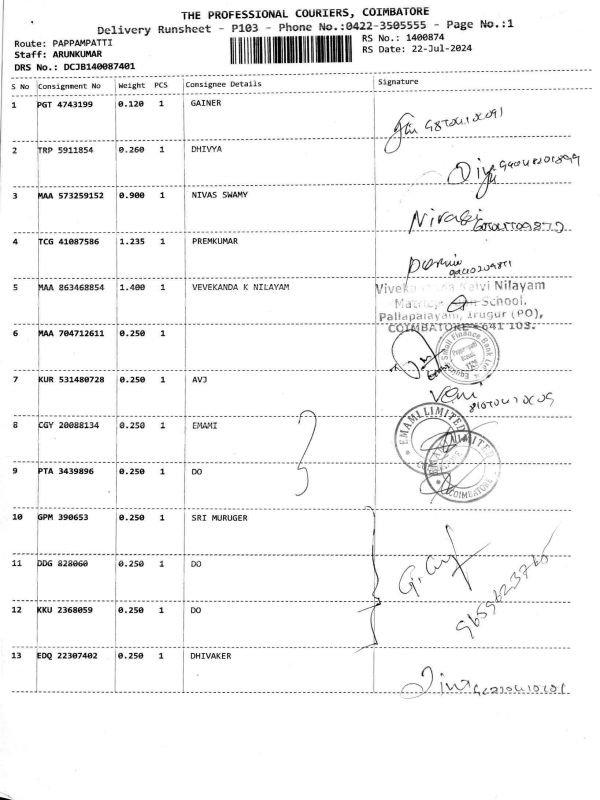 THE PROFESSIONAL COURIERS, COIMBATORE
Delivery Runsheet - P103 - Phone No.:0422-3505555 - Page No.:1
Route: PAPPAMPATTI
RS No.: 1400874
Staff: ARUNKUMAR
RS Date: 22-Jul-2024
DRS No.: DCJB140087401
S No Consignment No Weight PCS Consignee Details Signature
1 PGT 4743199 0.120 1 GAINER
2 TRP 5911854 0.260 1 DHIVYA
3 MAA 573259152 0.900 1 NIVAS SWAMY
4 TCG 41087586 1.235 1 PREMKUMAR
5 MAA 863468854 1.400 1 VEVEKANDA K NILAYAM
Nilayam
School.
Pallapalayam, Irugur (PO),
COIMBATORE - 641 103.
6 MAA 704712611 0.250 1
Small Finance Bank
7 KUR 531480728 0.250 1 AVJ
8 CGY 20088134 0.250 1 EMAMI
EMAMI LIMITED
9 PTA 3439896 0.250 1 DO
COIMBATORE
10 GPM 390653 0.250 1 SRI MURUGER
11 DDG 828060 0.250 1 DO
12 KKU 2368059 0.250 1 DO
13 EDQ 22307402 0.250 1 DHIVAKER